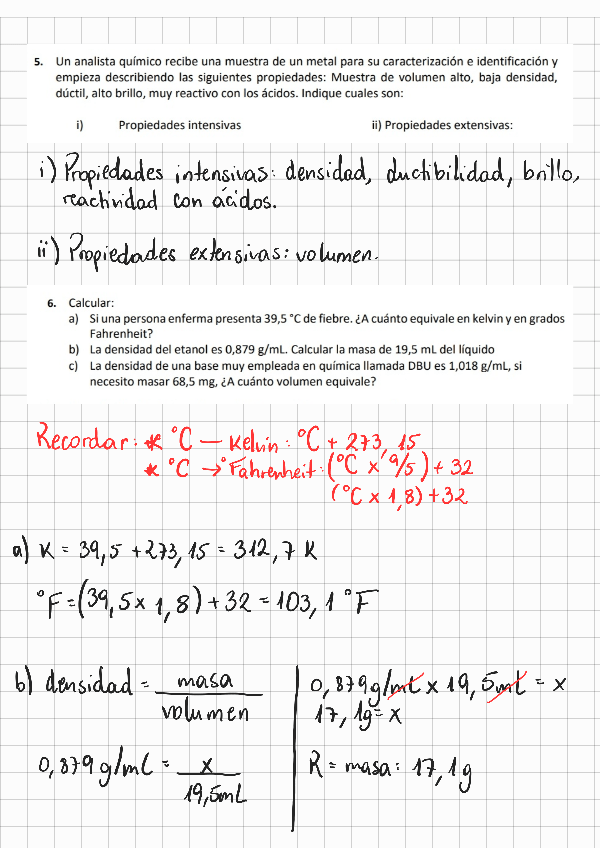 5. Un analista químico recibe una muestra de un metal para su caracterización e identificación y
empieza describiendo las siguientes propiedades: Muestra de volumen alto, baja densidad,
dúctil, alto brillo, muy reactivo con los ácidos. Indique cuales son:
i) Propiedades intensivas ii) Propiedades extensivas:
i) Propiedades intensivas: densidad, ductibilidad, brillo,
reactividad con ácidos.
ii) Propiedades extensivas: volumen.
6. Calcular:
a) Si una persona enferma presenta 39,5 °C de fiebre. ¿A cuánto equivale en kelvin y en grados
Fahrenheit?
b) La densidad del etanol es 0,879 g/mL. Calcular la masa de 19,5 mL del líquido
c) La densidad de una base muy empleada en química llamada DBU es 1,018 g/mL, si
necesito masar 68,5 mg, ¿A cuánto volumen equivale?
Recordar: * °C — Kelvin: °C + 273,15
* °C → °Fahrenheit: (°C x 9/5) + 32
(°C x 1,8) + 32
a) K = 39,5 + 273,15 = 312,7 K
°F = (39,5 x 1,8) + 32 = 103,1 °F
b) densidad = masa
volumen
0,879 g/mL = x
19,5mL
0,879g/mL x 19,5mL = x
17,1g = x
R = masa: 17,1g